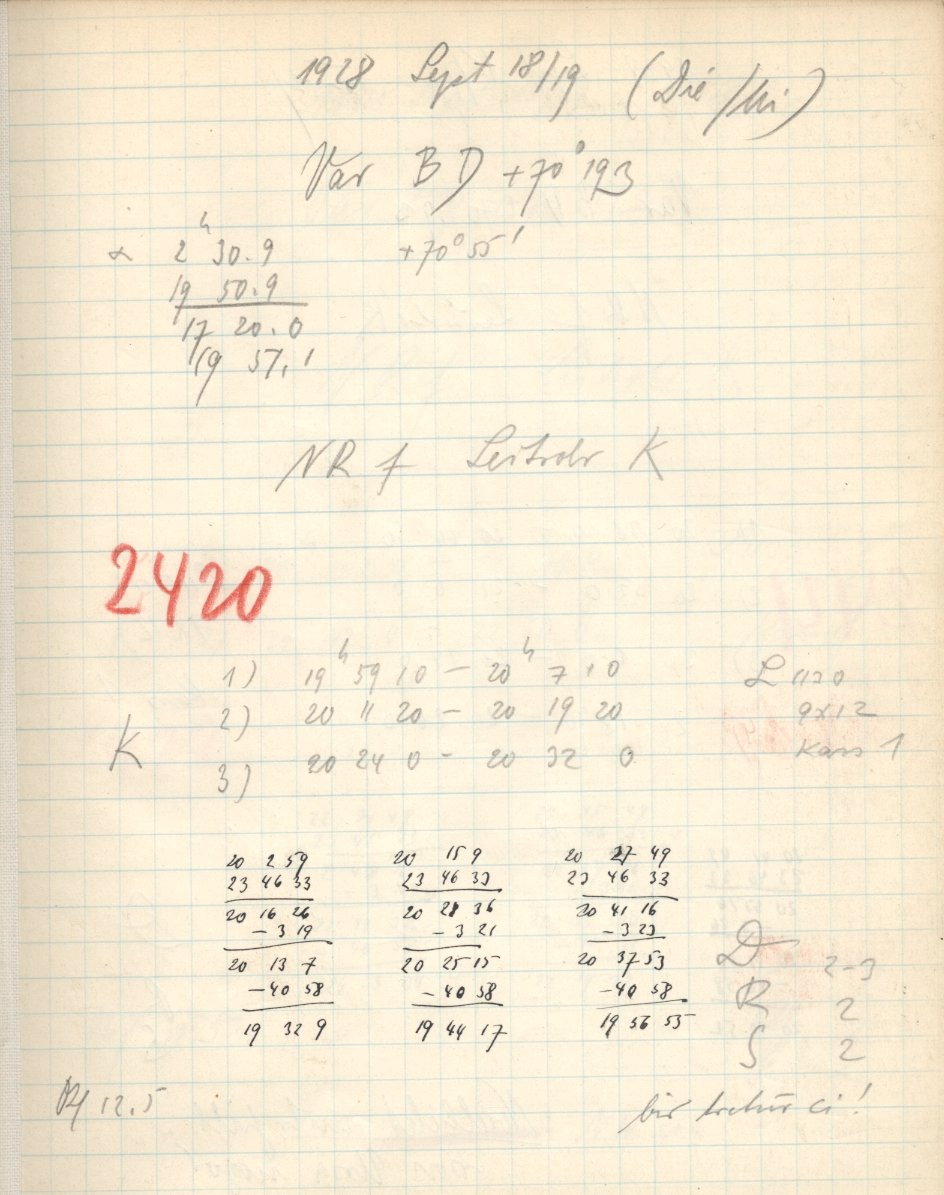 1928 Sept 18/19 (Die/Mi)
Var BD +70° 193
α 2ʰ 30.9 +70° 55'
19 50.9
17 20.0
19 57.1
NR f Leitrohr K
2420
1) 19ʰ 59 10 – 20ʰ 7 10 L 1120
K 2) 20 11 20 – 20 19 20 9x12
3) 20 24 0 – 20 32 0 Kass 1
20 2 59 20 15 9 20 27 49
23 46 33 23 46 33 23 46 33
20 16 26 20 28 36 20 41 16
– 3 19 – 3 21 – 3 23
20 13 7 20 25 15 20 37 53
–40 58 –40 58 –40 58
19 32 9 19 44 17 19 56 55
D 2–3
R 2
S 2
12.5